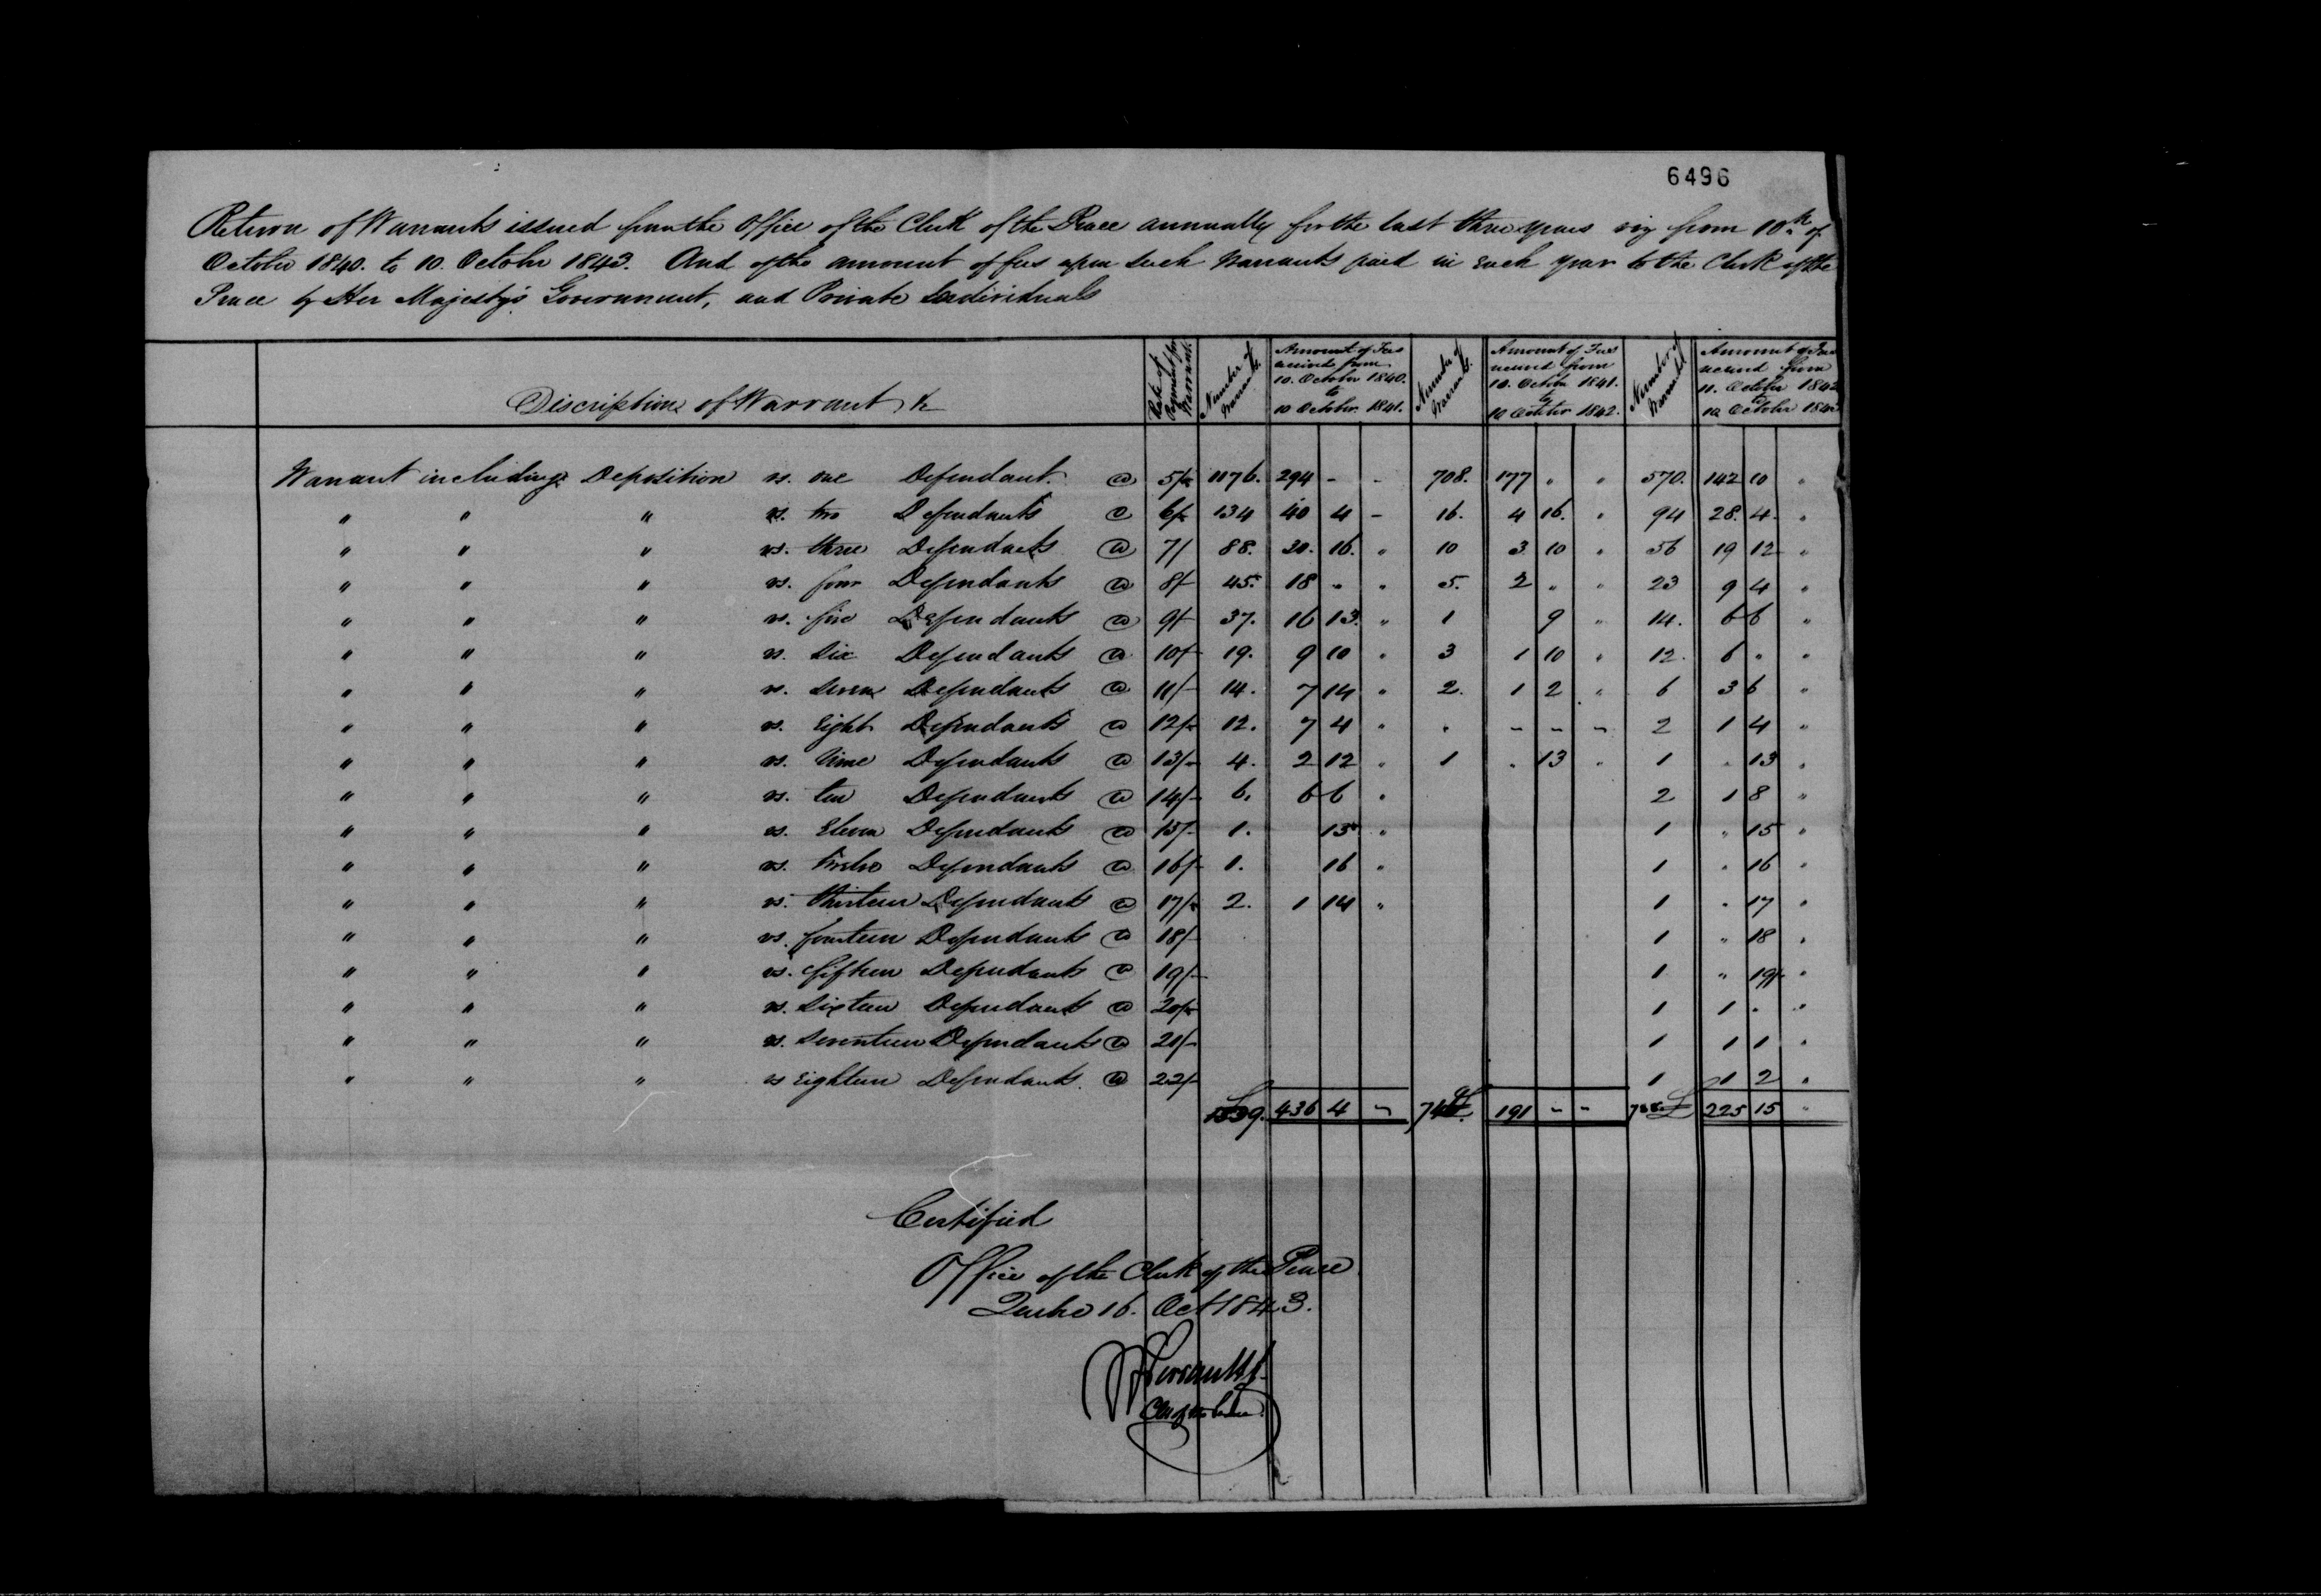 6496
Return of Warrants issued from the Office of the Clerk of the Peace annually for the last three years viz from 10th of
October 1840. to 10. October 1843. And of the amount of fees upon such Warrants paid in each year to the Clerk of the
Peace by Her Majesty's Government, and Private Individuals
Discription of Warrant &c | Rate of | Number of Warrants. | Amount of Fees accrued from 10. October 1840. to 10 October 1841. | Number of Warrants. | Amount of Fees accrued from 10. October 1841. to 10 October 1842. | Number of Warrants | Amount of Fees accrued from 11. October 1842 to 10 October 1843
Warrant including Deposition vs. one Defendant. @ 5/- 1176. 294 - - 708. 177 " " 570. 142 10 "
" " " vs. two Defendants @ 6/- 134 40 4 - 16. 4 16. " 94 28. 4. "
" " " vs. three Defendants @ 7/ 88. 30. 16. " 10 3 10 " 56 19 12 "
" " " vs. four Defendants @ 8/- 45. 18 " " 5. 2 " " 23 9 4 "
" " " vs. five Defendants @ 9/- 37. 16 13. " 1 9 " 14. 6 6 "
" " " vs. Six Defendants @ 10/- 19. 9 10 " 3 1 10 " 12. 6 " "
" " " vs. Seven Defendants @ 11/- 14. 7 14 " 2. 1 2 " 6 3 6 "
" " " vs. Eight Defendants @ 12/- 12. 7 4 " " - - - 2 1 4 "
" " " vs. Nine Defendants @ 13/- 4. 2 12 " 1 " 13 " 1 " 13 "
" " " vs. ten Defendants @ 14/- 6. 6 6 " 2 1 8 "
" " " vs. Eleven Defendants @ 15/- 1. 15 " 1 " 15 "
" " " vs. twelve Defendants @ 16/- 1. 16 " 1 " 16 "
" " " vs. thirteen Defendants @ 17/- 2. 1 14 " 1 " 17 "
" " " vs. fourteen Defendants @ 18/- 1 " 18 "
" " " vs. fifteen Defendants @ 19/- 1 " 19 "
" " " vs. Sixteen Defendants @ 20/- 1 1 " "
" " " vs. Seventeen Defendants @ 21/- 1 1 1 "
" " " vs Eighteen Defendants. @ 22/- 1 1 2 "
1539. £ 436 4 - 746 £ 191 - - 788 £ 225 15 "
Certified
Office of the Clerk of the Peace
Quebec 16. Oct 1843.
Perrault